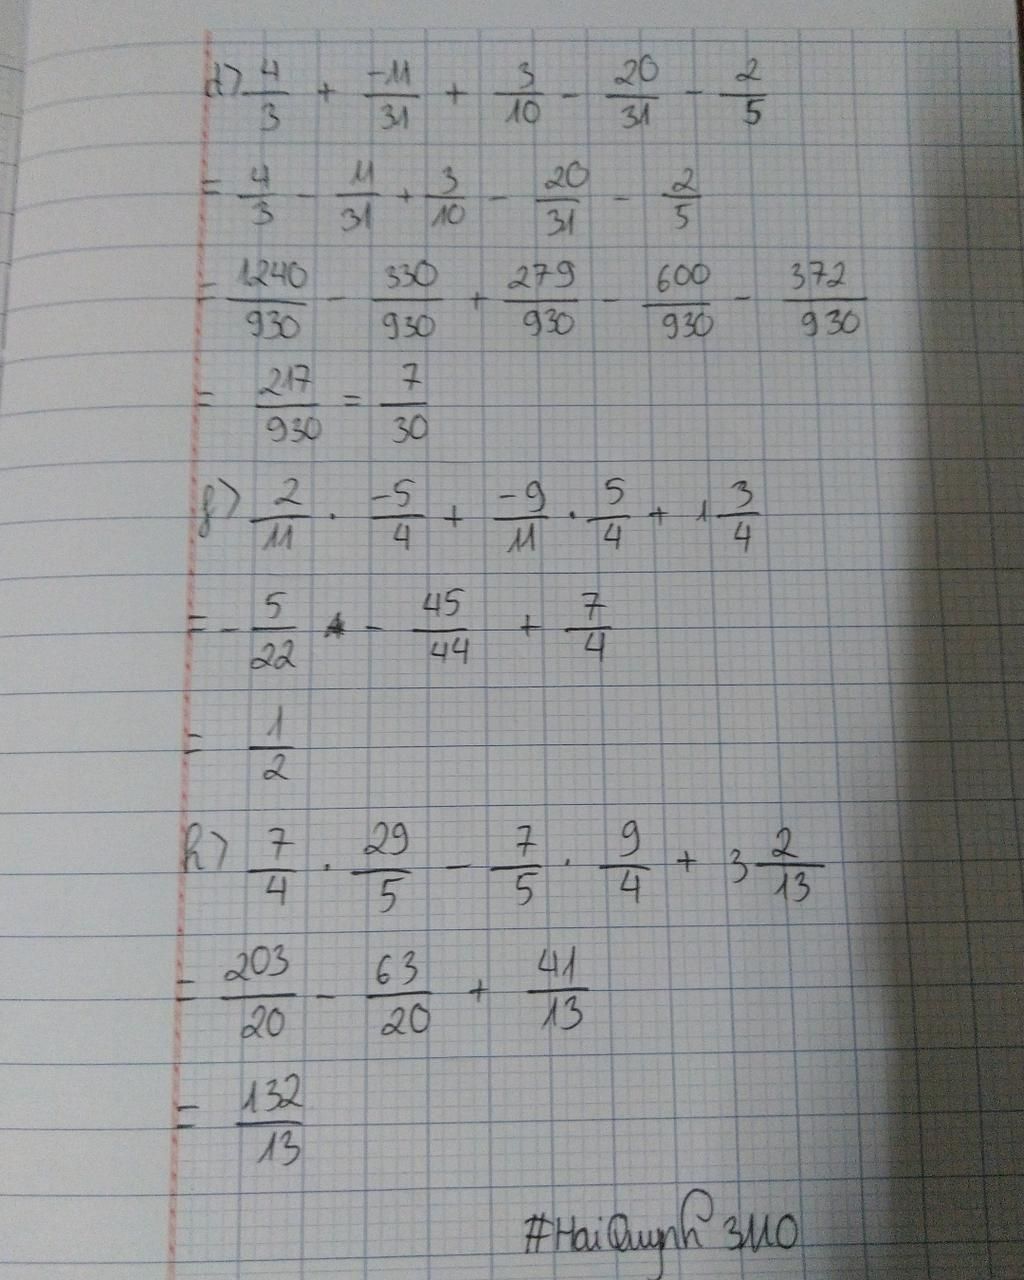 d) 4/3 + -11/31 + 3/10 - 20/31 - 2/5
= 4/3 - 11/31 + 3/10 - 20/31 - 2/5
= 1240/930 - 330/930 + 279/930 - 600/930 - 372/930
= 217/930 = 7/30
f) 2/11 . -5/4 + -9/11 . 5/4 + 1 3/4
= - 5/22 - 45/44 + 7/4
= 1/2
h) 7/4 . 29/5 - 7/5 . 9/4 + 3 2/13
= 203/20 - 63/20 + 41/13
= 132/13
#HaiQuynh 3110